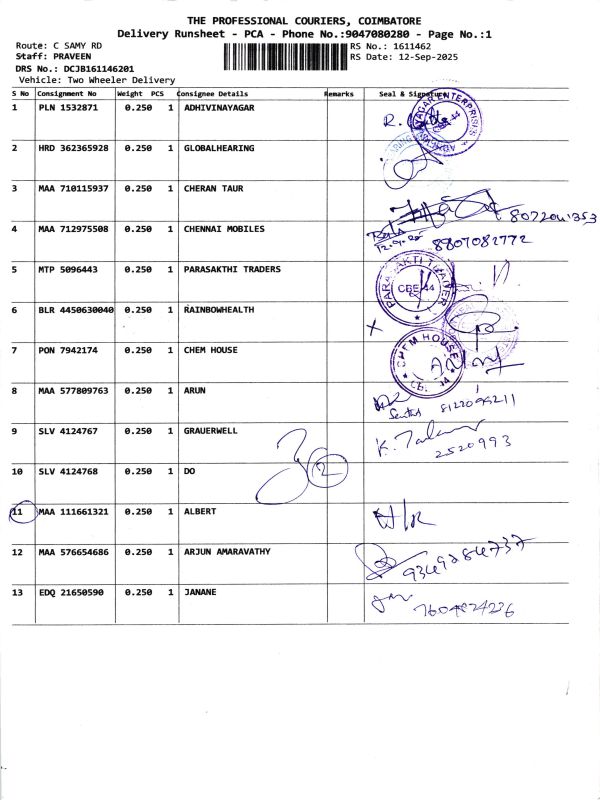 THE PROFESSIONAL COURIERS, COIMBATORE
Delivery Runsheet - PCA - Phone No.:9047080280 - Page No.:1
Route: C SAMY RD RS No.: 1611462
Staff: PRAVEEN RS Date: 12-Sep-2025
DRS No.: DCJB161146201
Vehicle: Two Wheeler Delivery
S No Consignment No Weight PCS Consignee Details Remarks Seal & Signature
1 PLN 1532871 0.250 1 ADHIVINAYAGAR
2 HRD 362365928 0.250 1 GLOBALHEARING
3 MAA 710115937 0.250 1 CHERAN TAUR
4 MAA 712975508 0.250 1 CHENNAI MOBILES 8807082772
5 MTP 5096443 0.250 1 PARASAKTHI TRADERS CBE 44
6 BLR 4450630040 0.250 1 RAINBOWHEALTH
7 PON 7942174 0.250 1 CHEM HOUSE CHEM HOUSE
8 MAA 577809763 0.250 1 ARUN
9 SLV 4124767 0.250 1 GRAUERWELL 2520993
10 SLV 4124768 0.250 1 DO 2
11 MAA 111661321 0.250 1 ALBERT
12 MAA 576654686 0.250 1 ARJUN AMARAVATHY
13 EDQ 21650590 0.250 1 JANANE